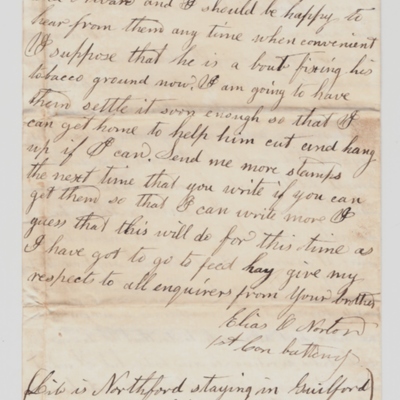 and I should be happy to
hear from them any time when convenient
I suppose that he is a bout fixing his
tobacco ground now. I am going to have
them settle it soon enough so that I
can get home to help him cut and hang
up if I can. Send me more stamps
the next time that you write if you can
get them so that I can write more I
guess that this will do for this time as
I have got to go to feed hay give my
respects to all enquirers from Your brother
Elias O Norton
1st Con battery
is Northford staying in Guilford